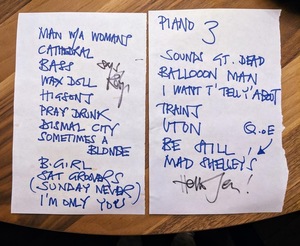 MAN W/A WOMANS
CATHEDRAL
BASS
WAX DOLL
HIGSONS
PRAY DRINK
DISMAL CITY
SOMETIMES A
BLONDE
B. GIRL
SAT GROOVERS
(SUNDAY NEVER)
I'M ONLY YOU
PIANO 3
SOUNDS GT. DEAD
BALLOON MAN
I WANT T'TELL Y'ABOUT
TRAINS
UTON
Q.OE
BE STILL
MAD SHELLEYS
!